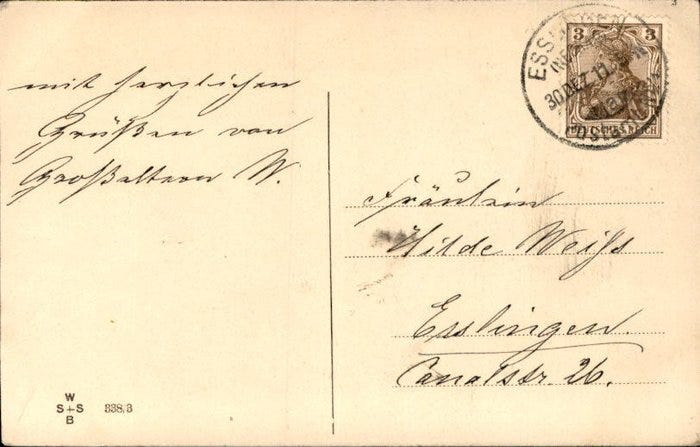 mit herzlichen
Grüßen von
Großeltern W.
Fräulein
Hilde Weiß
Esslingen.
Canalstr. 26.
ESSLINGEN
30 DEZ. 11
3 3
DEUTSCHES REICH
W
S+S
B
338/3